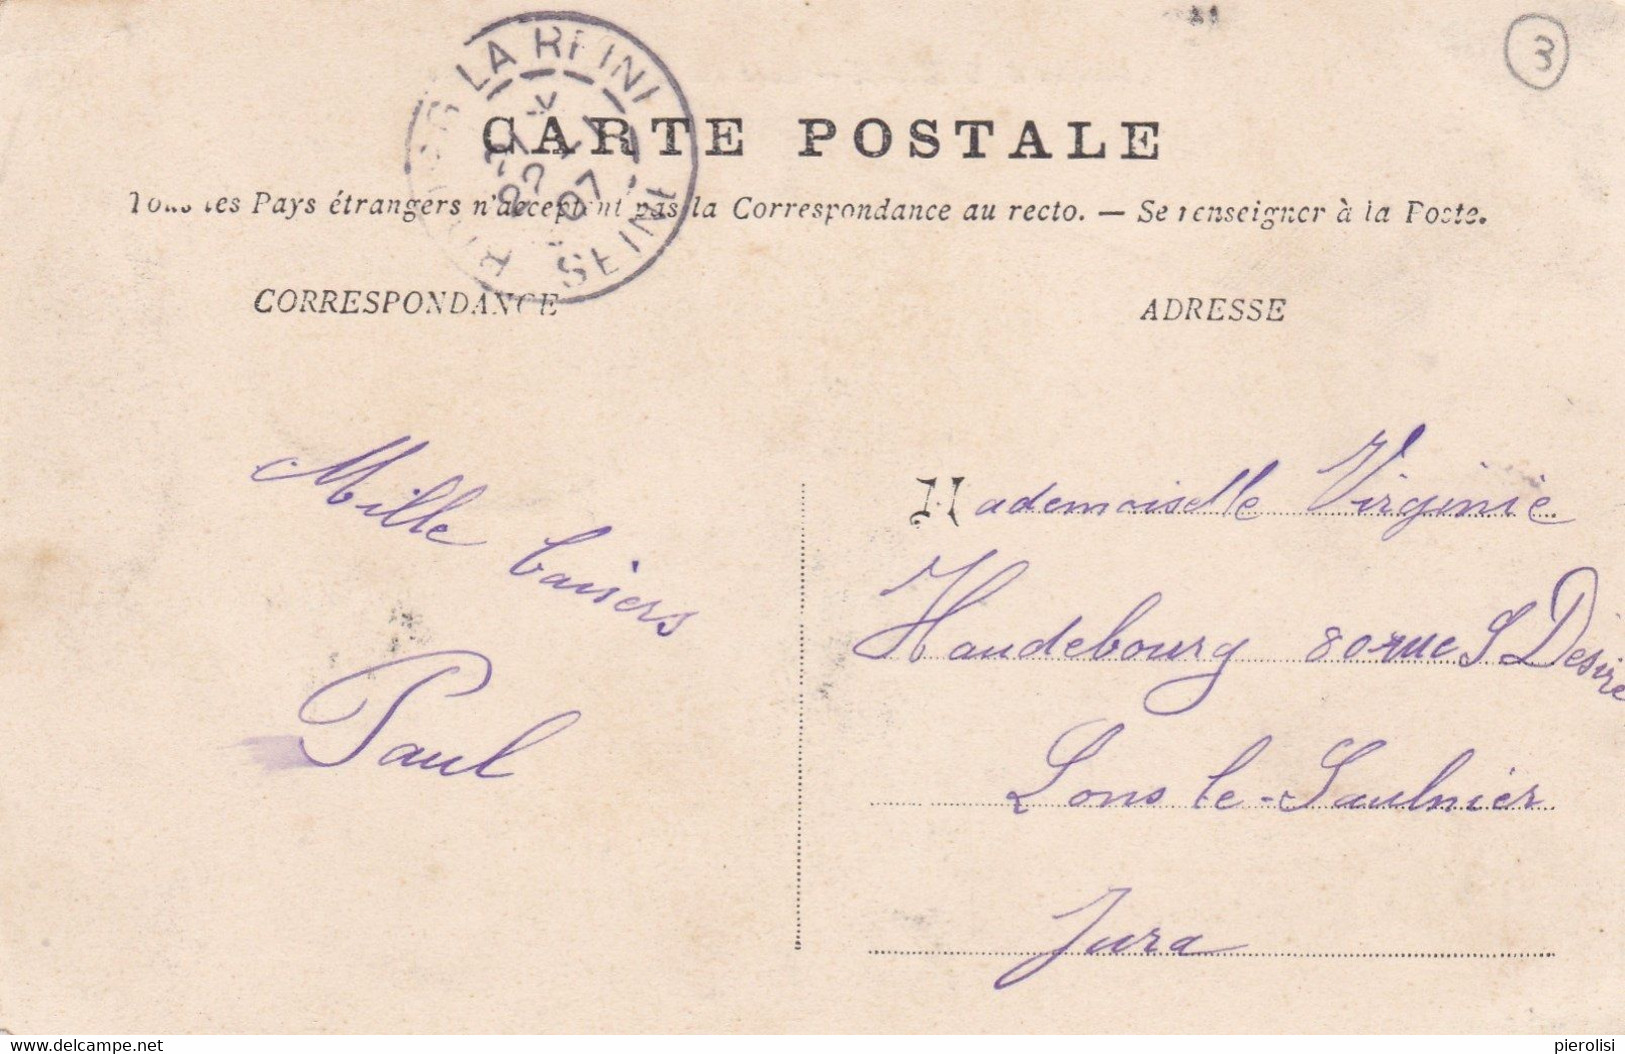 3
LA REINE
CARTE POSTALE
22
07
SEINE
Tous les Pays étrangers n'acceptent pas la Correspondance au recto. — Se renseigner à la Poste.
CORRESPONDANCE
ADRESSE
Mille baisers
Paul
Mademoiselle Virginie
Haudebourg 80 rue S Désiré
Lons le-Saulnier
Jura
www.delcampe.net
pierolisi